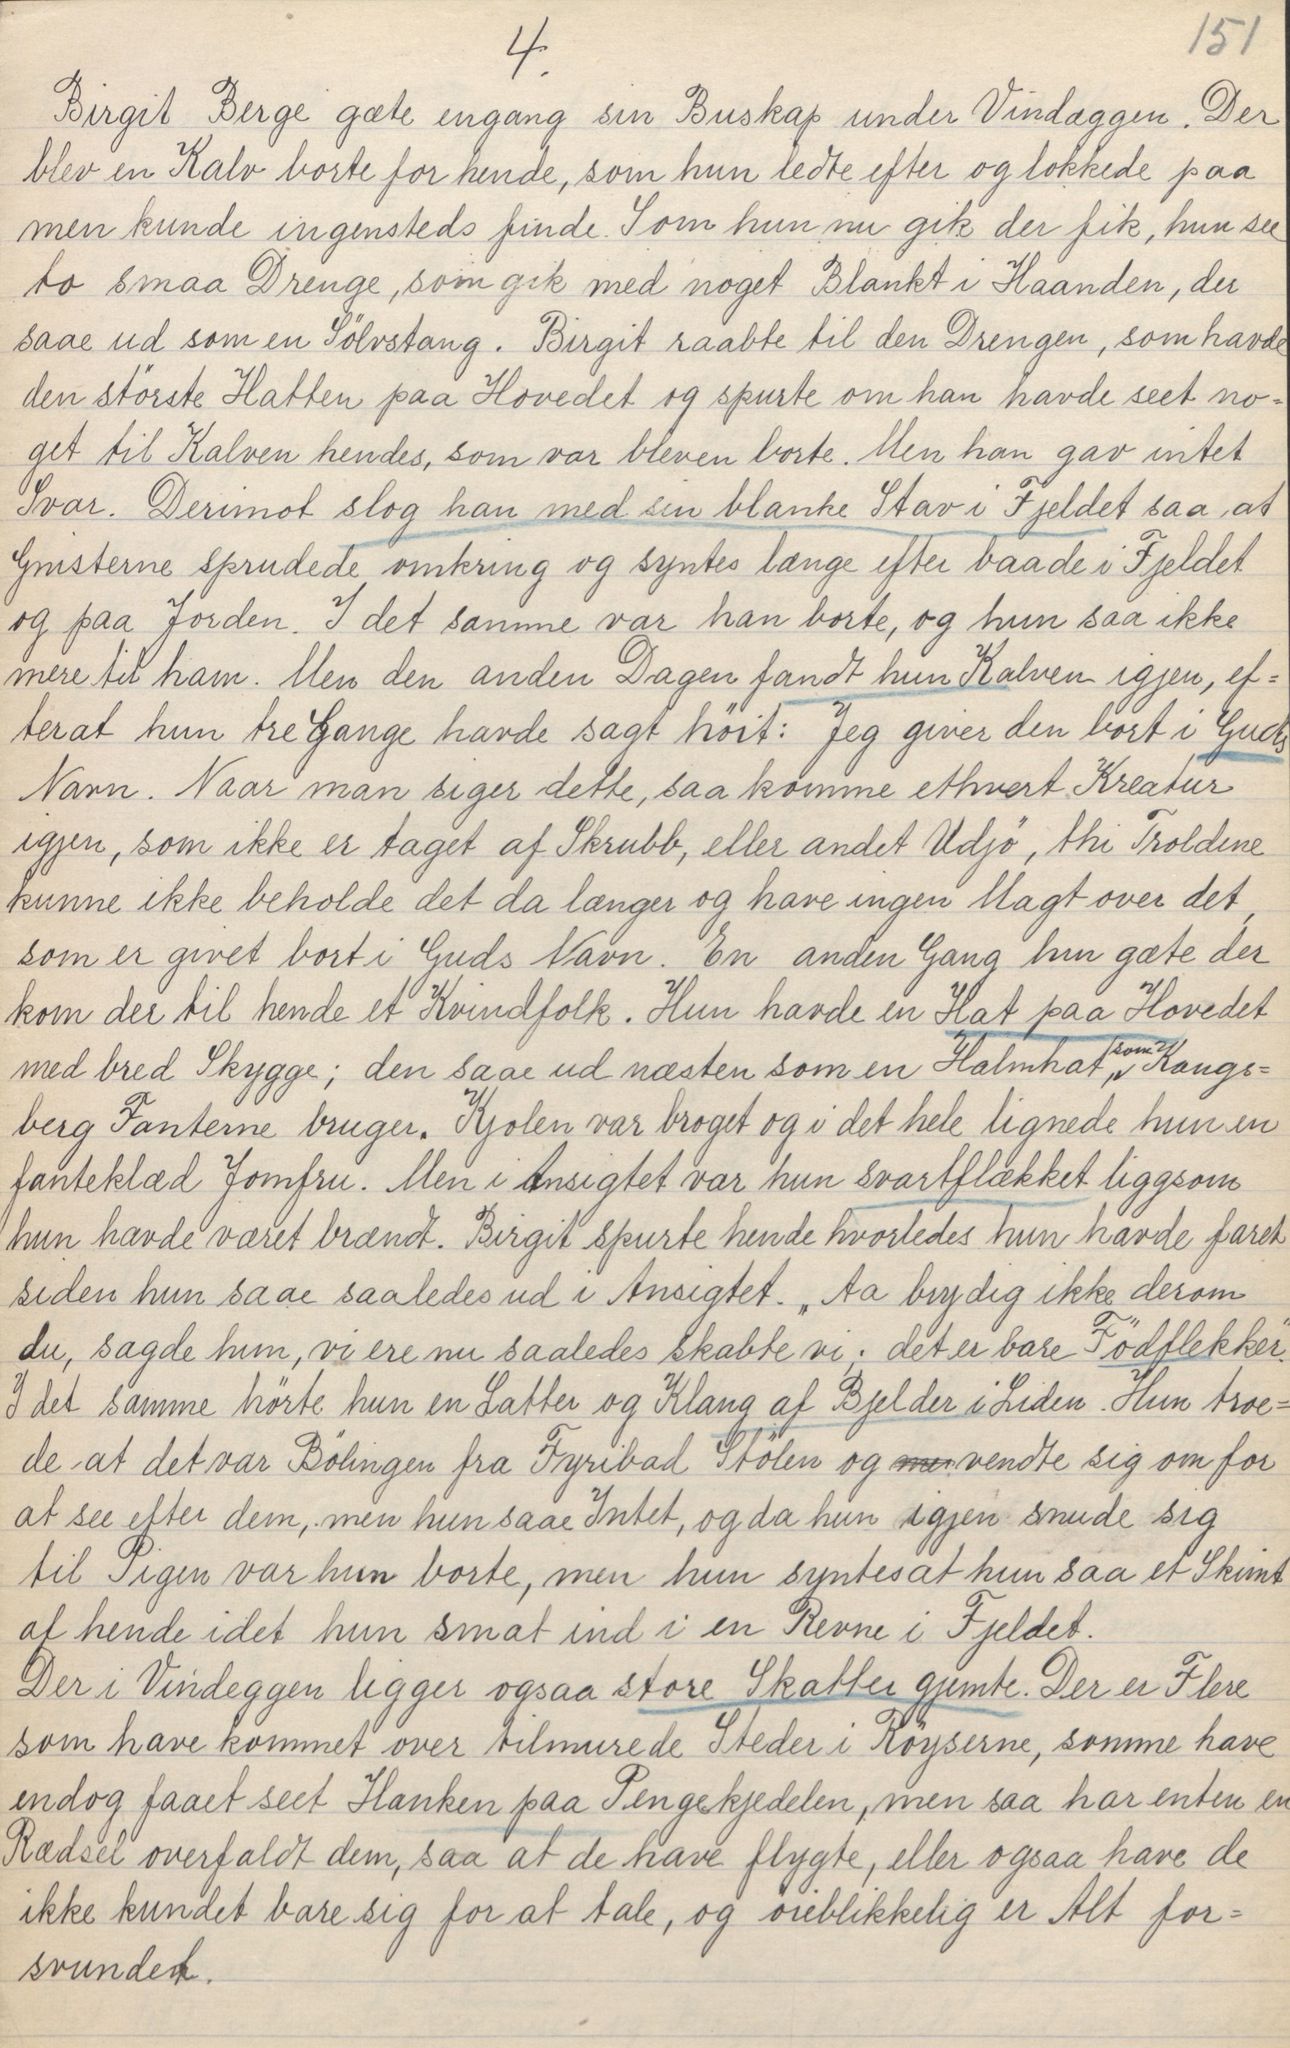 4.
151
Birgit Berge gæte engang sin Buskap under Vindæggen. Der
blev en Kalv borte for hende, som hun ledte efter og lokkede paa
men kunde ingensteds finde. Som hun nu gik der fik, hun see
to smaa Drenge, som gik med noget Blankt i Haanden, der
saae ud som en Sölvstang. Birgit raabte til den Drengen, som havde
den störste Hatten paa Hovedet og spurte om han havde seet no=
get til Kalven hendes, som var bleven borte. Men han gav intet
Svar. Derimot slog han med sin blanke Stav i Fjeldet saa at
Gnisterne sprudede omkring og syntes længe efter baade i Fjeldet
og paa Jorden. I det samme var han borte, og hun saa ikke
mere til ham. Men den anden Dagen fandt hun Kalven igjen, ef=
terat hun tre Gange havde sagt höit: Jeg giver den bort i Guds
Navn. Naar man siger dette, saa komme ethvert Kreatur
igjen, som ikke er taget af Skrubb, eller andet Udjö, thi Troldene
kunne ikke beholde det da længer og have ingen Magt over det,
som er givet bort i Guds Navn. En anden Gang hun gæte der
kom der til hende et Kvindfolk. Hun havde en Hat paa Hovedet
med bred Skygge; den saae ud næsten som en Halmhat, som Kongs=
berg Fanterne bruger. Kjolen var broget og i det hele lignede hun en
fanteklæd Jomfru. Men i Ansigtet var hun svartflækket liggsom
hun havde været brændt. Birgit spurte hende hvorledes hun havde faret
siden hun saae saaledes ud i Ansigtet. „Aa bry dig ikke derom
du, sagde hun, vi ere nu saaledes skabte vi; det er bare Födflekker."
I det samme hörte hun en Latter og Klang af Bjelder i Liden. Hun troe=
de at det var Bölingen fra Fyribad Stölen og men vendte sig om for
at see efter dem, men hun saae Intet, og da hun igjen snude sig
til Pigen var hun borte, men hun syntes at hun saa et Skimt
af hende idet hun smat ind i en Revne i Fjeldet.
Der i Vindeggen ligger ogsaa store Skatter gjemte. Der er Flere
som have kommet over tilmurede Steder i Röyserne, somme have
endog faaet seet Hanken paa Pengekjedelen, men saa har enten en
Rædsel overfaldt dem, saa at de have flygte, eller ogsaa have de
ikke kundet bare sig for at tale, og öieblikkelig er Alt for=
svundet.